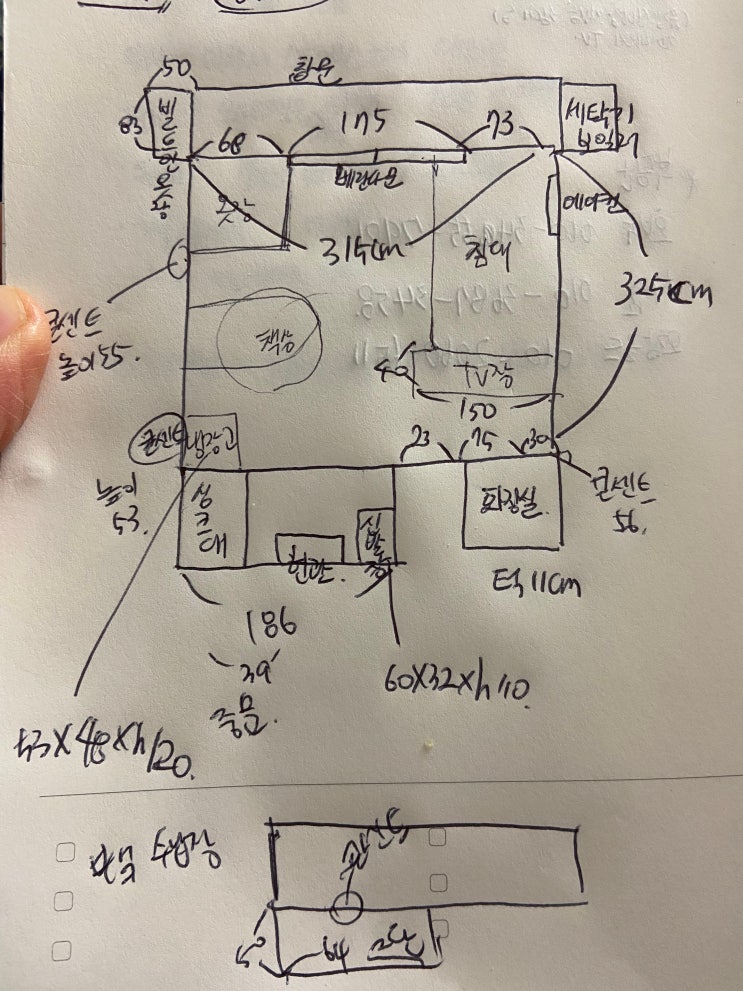 50
창문
빌트인옷장
83
68
175
73
세탁기
보일러
베란다문
에어컨
옷장
315cm
침대
325cm
콘센트
높이35.
책상
40
TV장
150
콘센트
냉장고
73
75
30
높이
53.
싱크대
현관
신발장
화장실
콘센트
56.
턱 11cm
186
39
60X32Xh110.
53X48Xh120.
수납장
콘센트
50
64